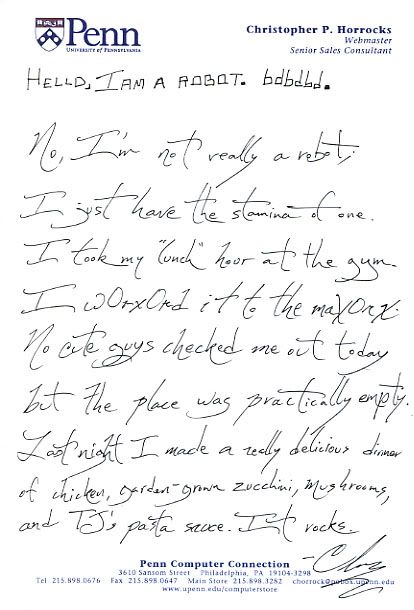 Penn
UNIVERSITY of PENNSYLVANIA
Christopher P. Horrocks
Webmaster
Senior Sales Consultant
HELLO, I AM A ROBOT. bdbdbd.
No, I'm not really a robot;
I just have the stamina of one.
I took my "lunch" hour at the gym.
I w0rx0rd it to the maX0rx.
No cute guys checked me out today
but the place was practically empty.
Last night I made a really delicious dinner
of chicken, garden-grown zucchini, mushrooms,
and TJ's pasta sauce. It rocks.
Penn Computer Connection
3610 Sansom Street Philadelphia, PA 19104-3298
Tel 215.898.0676 Fax 215.898.0647 Main Store 215.898.3282 chorrock@pobox.upenn.edu
www.upenn.edu/computerstore